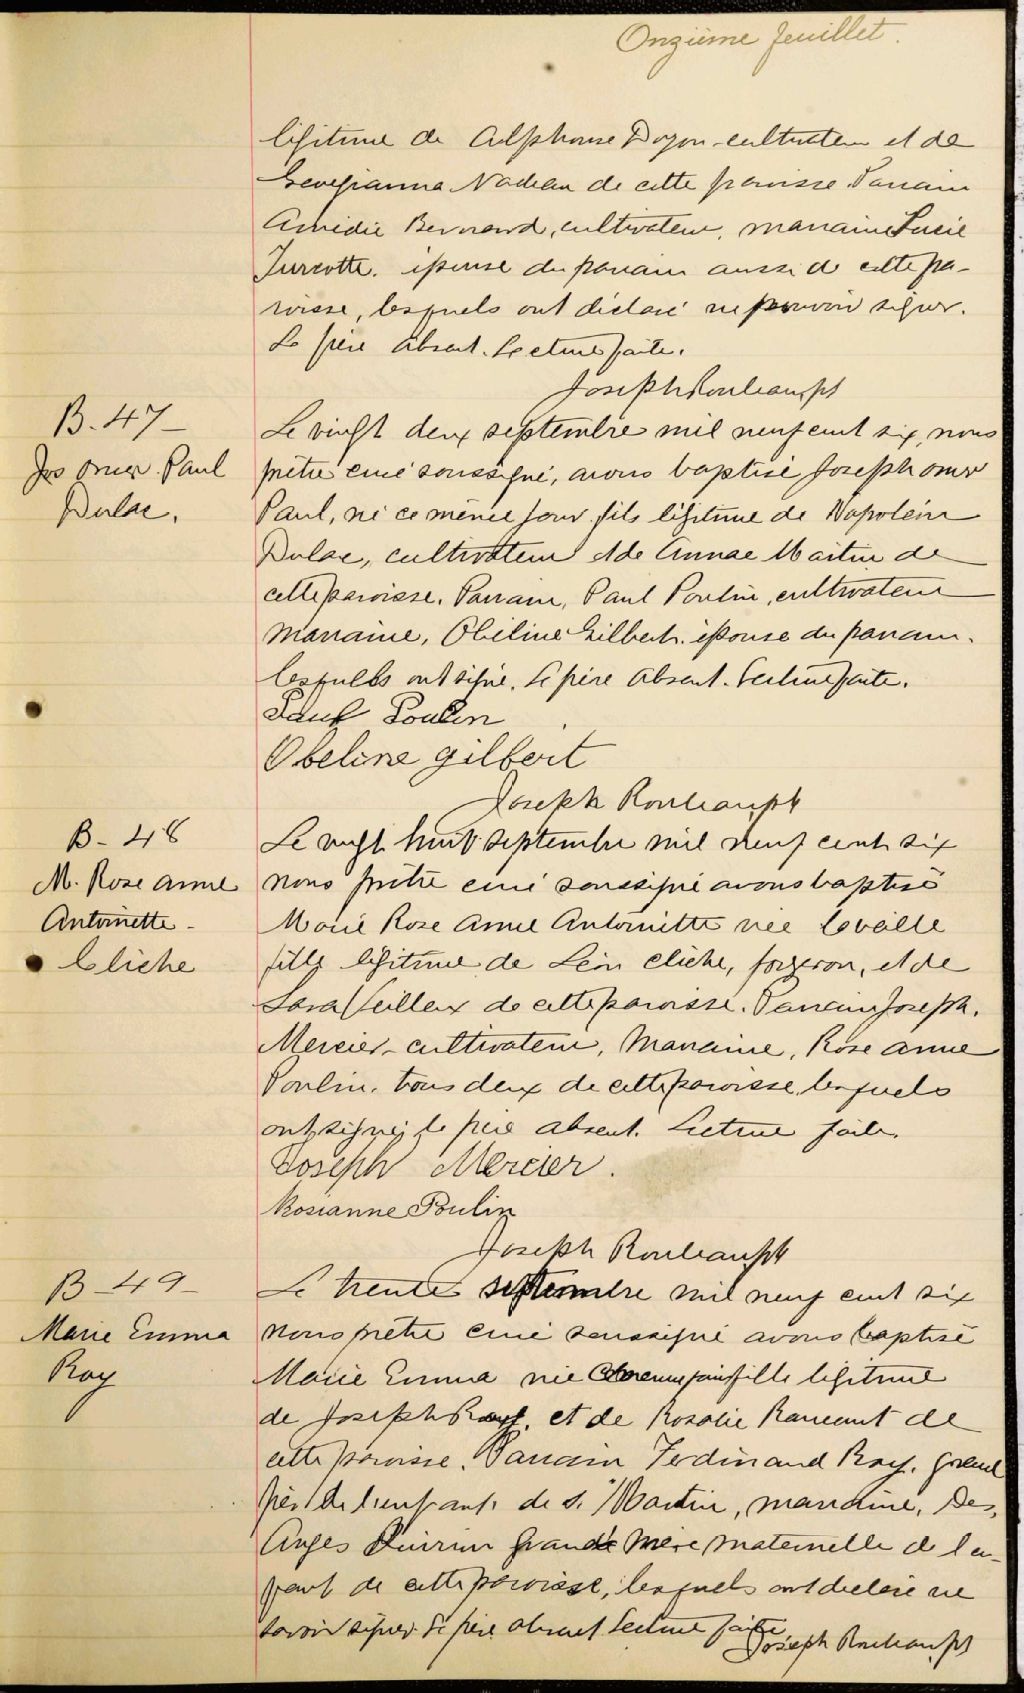 Onzième feuillet.
légitime de Alphonse Doyon cultivateur et de
Georgianna Nadeau de cette paroisse. Parrain
Amédie Bernard, cultivateur, marraine Lucie
Turcotte. épouse du parrain aussi de cette pa-
roisse, lesquels ont déclaré ne pouvoir signer.
Le père absent. Lecture faite.
Joseph Rouleau, pt
B. 47 -
Jos Omer Paul
Dulac.
Le vingt deux septembre mil neuf cent six, nous
prêtre curé soussigné, avons baptisé Joseph Omer
Paul, né ce même jour, fils légitime de Napoléon
Dulac, cultivateur et de Annae Martin de
cette paroisse. Parrain, Paul Poulin, cultivateur
marraine, Obéline Gilbert. épouse du parrain.
lesquels ont signé. Le père absent. Lecture faite.
Paul Poulin
Obeline Gilbert
Joseph Rouleau, pt
B - 48
M. Rose Anne
Antoinette -
Cliche
Le vingt huit septembre mil neuf cent six
nous prêtre curé soussigné avons baptisé
Marie Rose Anne Antoinette née la veille
fille légitime de Léon Cliche, forgeron, et de
Sara Veilleux de cette paroisse. Parrain Joseph.
Mercier - cultivateur, Marraine, Rose Anne
Poulin. tous deux de cette paroisse, lesquels
ont signé, le père absent. Lecture faite.
Joseph Mercier.
Rosianne Poulin
Joseph Rouleau, pt
B - 49 -
Marie Emma
Roy
Le trente septembre mil neuf cent six
nous prêtre curé soussigné avons baptisé
Marie Emma née ce même jour fille légitime
de Joseph Roy, et de Rosalie Rancourt de
cette paroisse. Parrain Ferdinand Roy, grand
père de l'enfant de St Martin, marraine, Des
Anges Quirion grande mère maternelle de l'en-
fant de cette paroisse, lesquels ont déclaré ne
savoir signer. Le père absent Lecture faite
Joseph Rouleau, pt